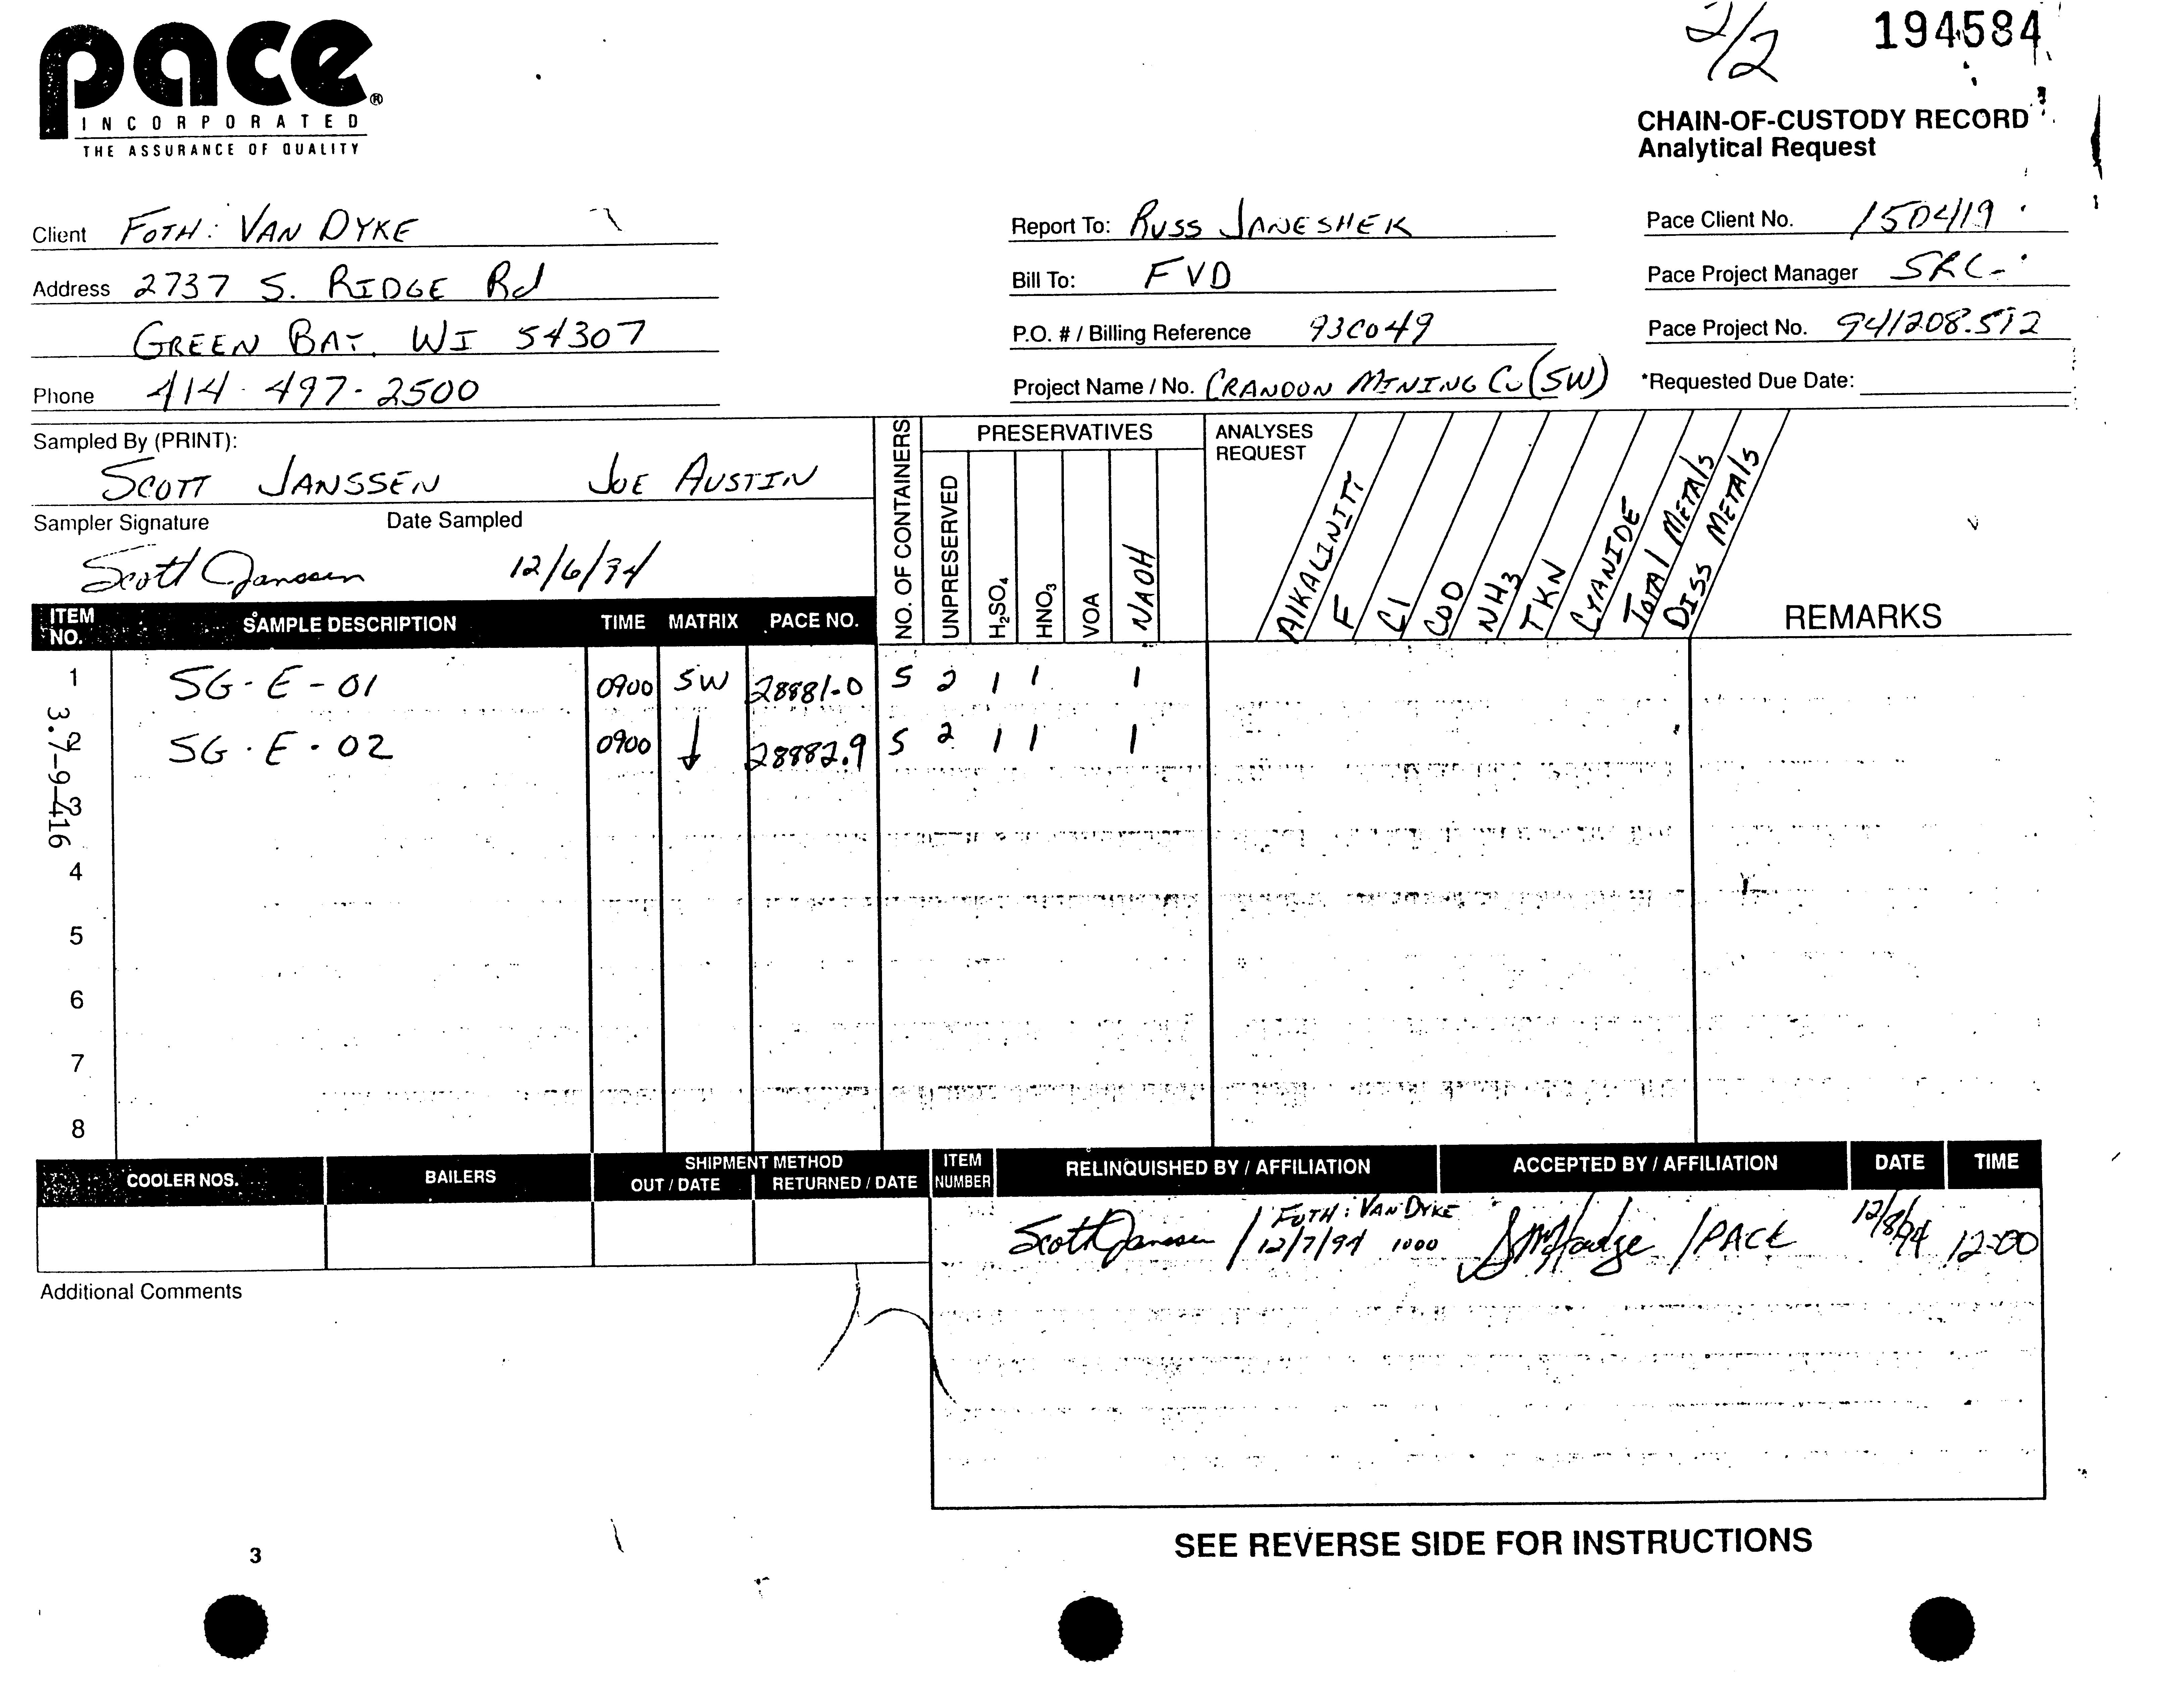 pace®
INCORPORATED
THE ASSURANCE OF QUALITY
2/2 194584
CHAIN-OF-CUSTODY RECORD
Analytical Request
Client FOTH: VAN DYKE
Address 2737 S. RIDGE Rd
GREEN BAY, WI 54307
Phone 414-497-2500
Report To: RUSS JANESHEK
Bill To: FVD
P.O. # / Billing Reference 93C049
Project Name / No. CRANDON MINING Co (SW)
Pace Client No. 150419
Pace Project Manager SRC
Pace Project No. 941208.512
*Requested Due Date:
Sampled By (PRINT):
SCOTT JANSSEN JOE AUSTIN
Sampler Signature Date Sampled
Scott Janssen 12/6/94
NO. OF CONTAINERS
PRESERVATIVES
UNPRESERVED
H₂SO₄
HNO₃
VOA
NAOH
ANALYSES
REQUEST
AlKALINITY
F
Cl
COD
NH3
TKN
CYANIDE
TOTAl METAls
DISS METAls
REMARKS
ITEM NO. SAMPLE DESCRIPTION TIME MATRIX PACE NO.
1 SG-E-01 0900 SW 28881.0 5 2 1 1 1
2 SG-E-02 0900 ↓ 28882.9 5 2 1 1 1
3
4
5
6
7
8
3.9-9-416
COOLER NOS. BAILERS SHIPMENT METHOD
OUT / DATE RETURNED / DATE
ITEM NUMBER RELINQUISHED BY / AFFILIATION ACCEPTED BY / AFFILIATION DATE TIME
Scott Janssen / FOTH: VAN DYKE 12/7/94 1000 /PACE 12/8/94 12:00
Additional Comments
SEE REVERSE SIDE FOR INSTRUCTIONS
3